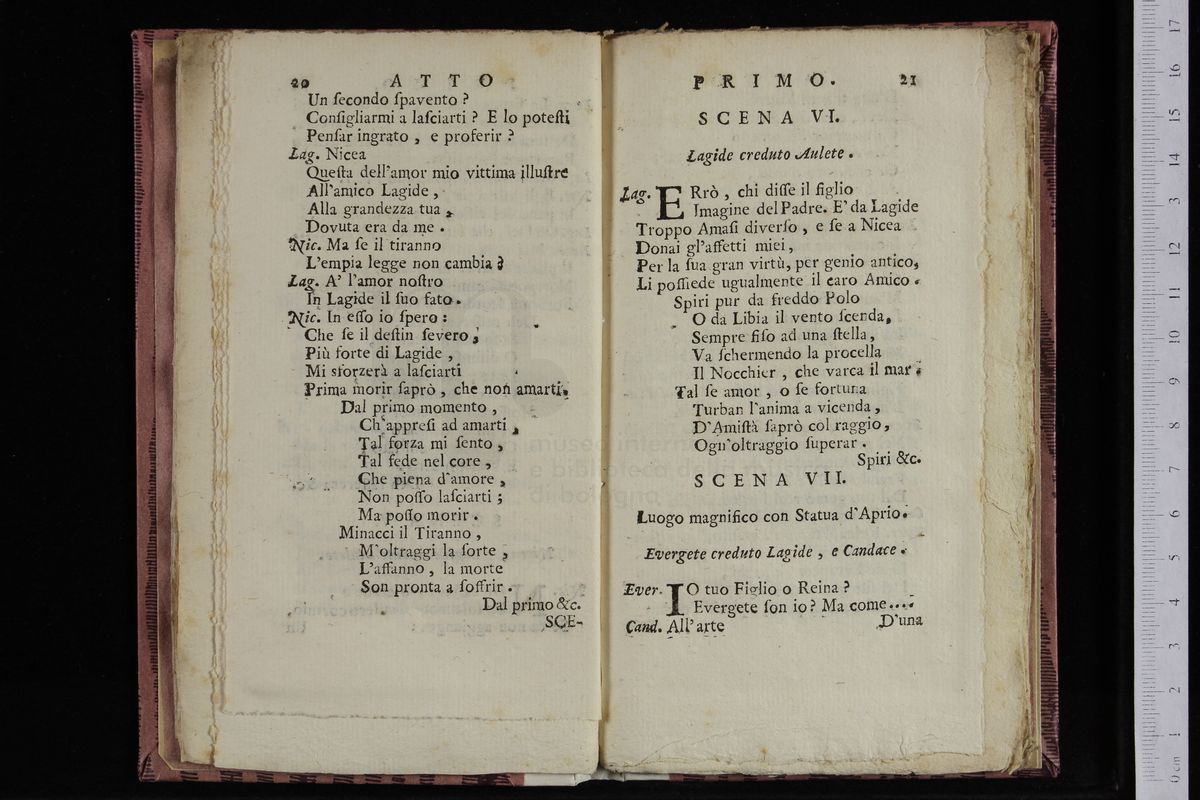 20 ATTO
Un ſecondo ſpavento ?
Conſigliarmi a laſciarti ? E lo poteſti
Penſar ingrato , e proferir ?
Lag. Nicea
Queſta dell'amor mio vittima illuſtre
All'amico Lagide ,
Alla grandezza tua ,
Dovuta era da me .
Nic. Ma ſe il tiranno
L'empia legge non cambia ?
Lag. A' l'amor noſtro
In Lagide il ſuo fato .
Nic. In eſſo io ſpero :
Che ſe il deſtin ſevero ,
Più forte di Lagide ,
Mi sforzerà a laſciarti
Prima morir ſaprò , che non amarti.
Dal primo momento ,
Ch'appreſi ad amarti ,
Tal forza mi ſento ,
Tal fede nel core ,
Che piena d'amore ,
Non poſſo laſciarti ;
Ma poſſo morir .
Minacci il Tiranno ,
M'oltraggi la ſorte ,
L'affanno , la morte
Son pronta a ſoffrir .
Dal primo &c.
SCE-
PRIMO. 21
SCENA VI.
Lagide creduto Aulete .
Lag. ERrò , chi diſſe il figlio
Imagine del Padre. E' da Lagide
Troppo Amaſi diverſo , e ſe a Nicea
Donai gl'affetti miei ,
Per la ſua gran virtù, per genio antico,
Li poſſiede ugualmente il caro Amico .
Spiri pur da freddo Polo
O da Libia il vento ſcenda,
Sempre fiſo ad una ſtella ,
Va ſchermendo la procella
Il Nocchier , che varca il mar .
Tal ſe amor , o ſe fortuna
Turban l'anima a vicenda ,
D'Amiſtà ſaprò col raggio ,
Ogn'oltraggio ſuperar .
Spiri &c.
SCENA VII.
Luogo magnifico con Statua d'Aprio.
Evergete creduto Lagide , e Candace .
Ever. IO tuo Figlio o Reina ?
Evergete ſon io ? Ma come....
Cand. All'arte
D'una
museo internazionale
e biblioteca della musica
di bologna
17
16
15
14
13
12
11
10
9
8
7
6
5
4
3
2
1
0 cm